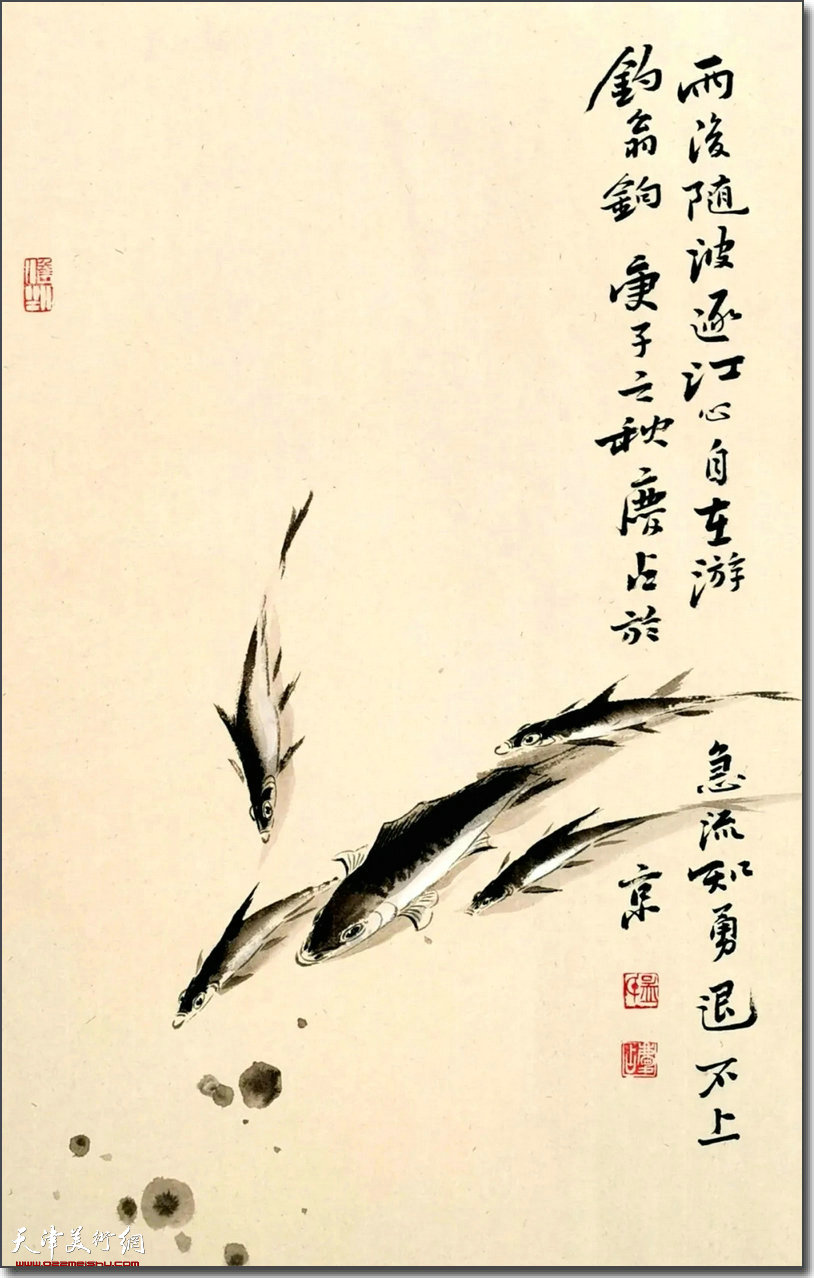 雨後随波逐江心自在游
急流知勇退不上
釣翁鈎 庚子之秋慶占於
京
慶占
天津美術網
www.022meishu.com